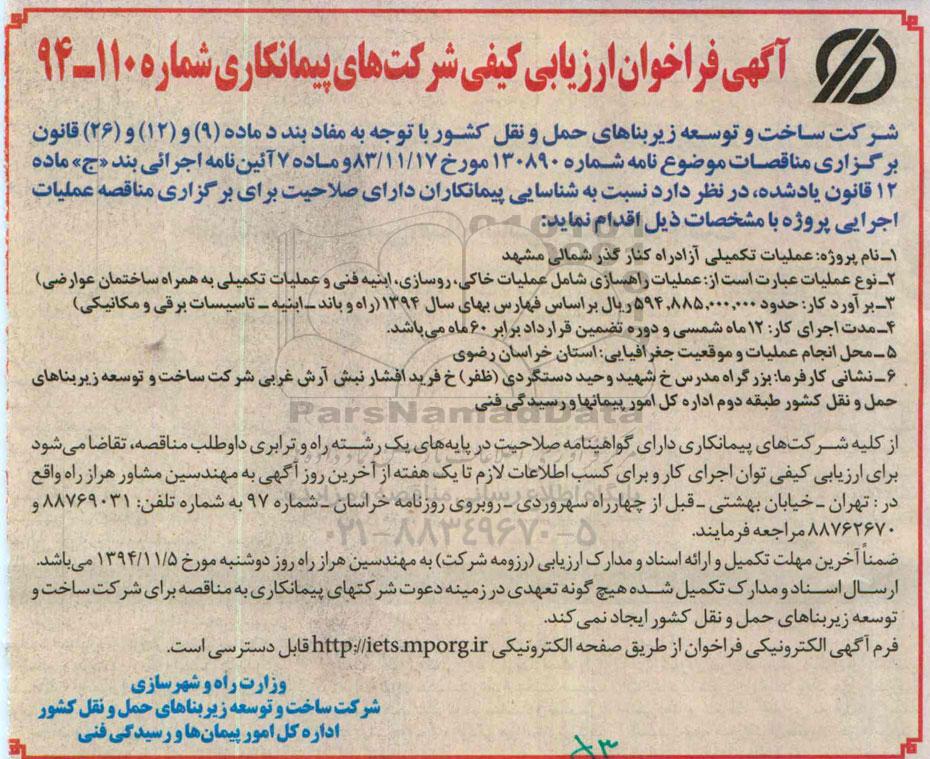 آگهی فراخوان ارزیابی کیفی شرکت‌های پیمانکاری شماره ۱۱۰ـ۹۴
شرکت ساخت و توسعه زیربناهای حمل و نقل کشور با توجه به مفاد بند د ماده (۹) و (۱۲) و (۲۶) قانون
برگزاری مناقصات موضوع نامه شماره ۱۳۰۸۹۰ مورخ ۸۳/۱۱/۱۷ و ماده ۷ آئین‌نامه اجرائی بند «ج» ماده
۱۲ قانون یادشده، در نظر دارد نسبت به شناسایی پیمانکاران دارای صلاحیت برای برگزاری مناقصه عملیات
اجرایی پروژه با مشخصات ذیل اقدام نماید:
۱ـ نام پروژه: عملیات تکمیلی آزادراه کنار گذر شمالی مشهد
۲ـ نوع عملیات عبارت است از: عملیات راهسازی شامل عملیات خاکی، روسازی، ابنیه فنی و عملیات تکمیلی به همراه ساختمان عوارضی)
۳ـ برآورد کار: حدود ۵۹۴,۸۸۵,۰۰۰,۰۰۰ ریال براساس فهارس بهای سال ۱۳۹۴ (راه و باند ـ ابنیه ـ تاسیسات برقی و مکانیکی)
۴ـ مدت اجرای کار: ۱۲ ماه شمسی و دوره تضمین قرارداد برابر ۶۰ ماه می‌باشد.
۵ ـ محل انجام عملیات و موقعیت جغرافیایی: استان خراسان رضوی
۶ ـ نشانی کارفرما: بزرگراه مدرس خ شهید وحید دستگردی (ظفر) خ فرید افشار نبش آرش غربی شرکت ساخت و توسعه زیربناهای
حمل و نقل کشور طبقه دوم اداره کل امور پیمانها و رسیدگی فنی
ParsNamadData
از کلیه شرکت‌های پیمانکاری دارای گواهینامه صلاحیت در پایه‌های یک رشته راه و ترابری داوطلب مناقصه، تقاضا می‌شود
برای ارزیابی کیفی توان اجرای کار و برای کسب اطلاعات لازم تا یک هفته از آخرین روز آگهی به مهندسین مشاور هراز راه واقع
در: تهران ـ خیابان بهشتی ـ قبل از چهارراه سهروردی ـ روبروی روزنامه خراسان ـ شماره ۹۷ به شماره تلفن: ۸۸۷۶۹۰۳۱ و
۸۸۷۶۲۶۷۰ مراجعه فرمایند.
۰۲۱-۸۸۳۴۹۶۷۰-۵
ضمناً آخرین مهلت تکمیل و ارائه اسناد و مدارک ارزیابی (رزومه شرکت) به مهندسین هراز راه روز دوشنبه مورخ ۱۳۹۴/۱۱/۵ می‌باشد.
ارسال اسناد و مدارک تکمیل شده هیچ گونه تعهدی در زمینه دعوت شرکتهای پیمانکاری به مناقصه برای شرکت ساخت و
توسعه زیربناهای حمل و نقل کشور ایجاد نمی کند.
فرم آگهی الکترونیکی فراخوان از طریق صفحه الکترونیکی http://iets.mporg.ir قابل دسترسی است.
وزارت راه و شهرسازی
شرکت ساخت و توسعه زیربناهای حمل و نقل کشور
اداره کل امور پیمان‌ها و رسیدگی فنی